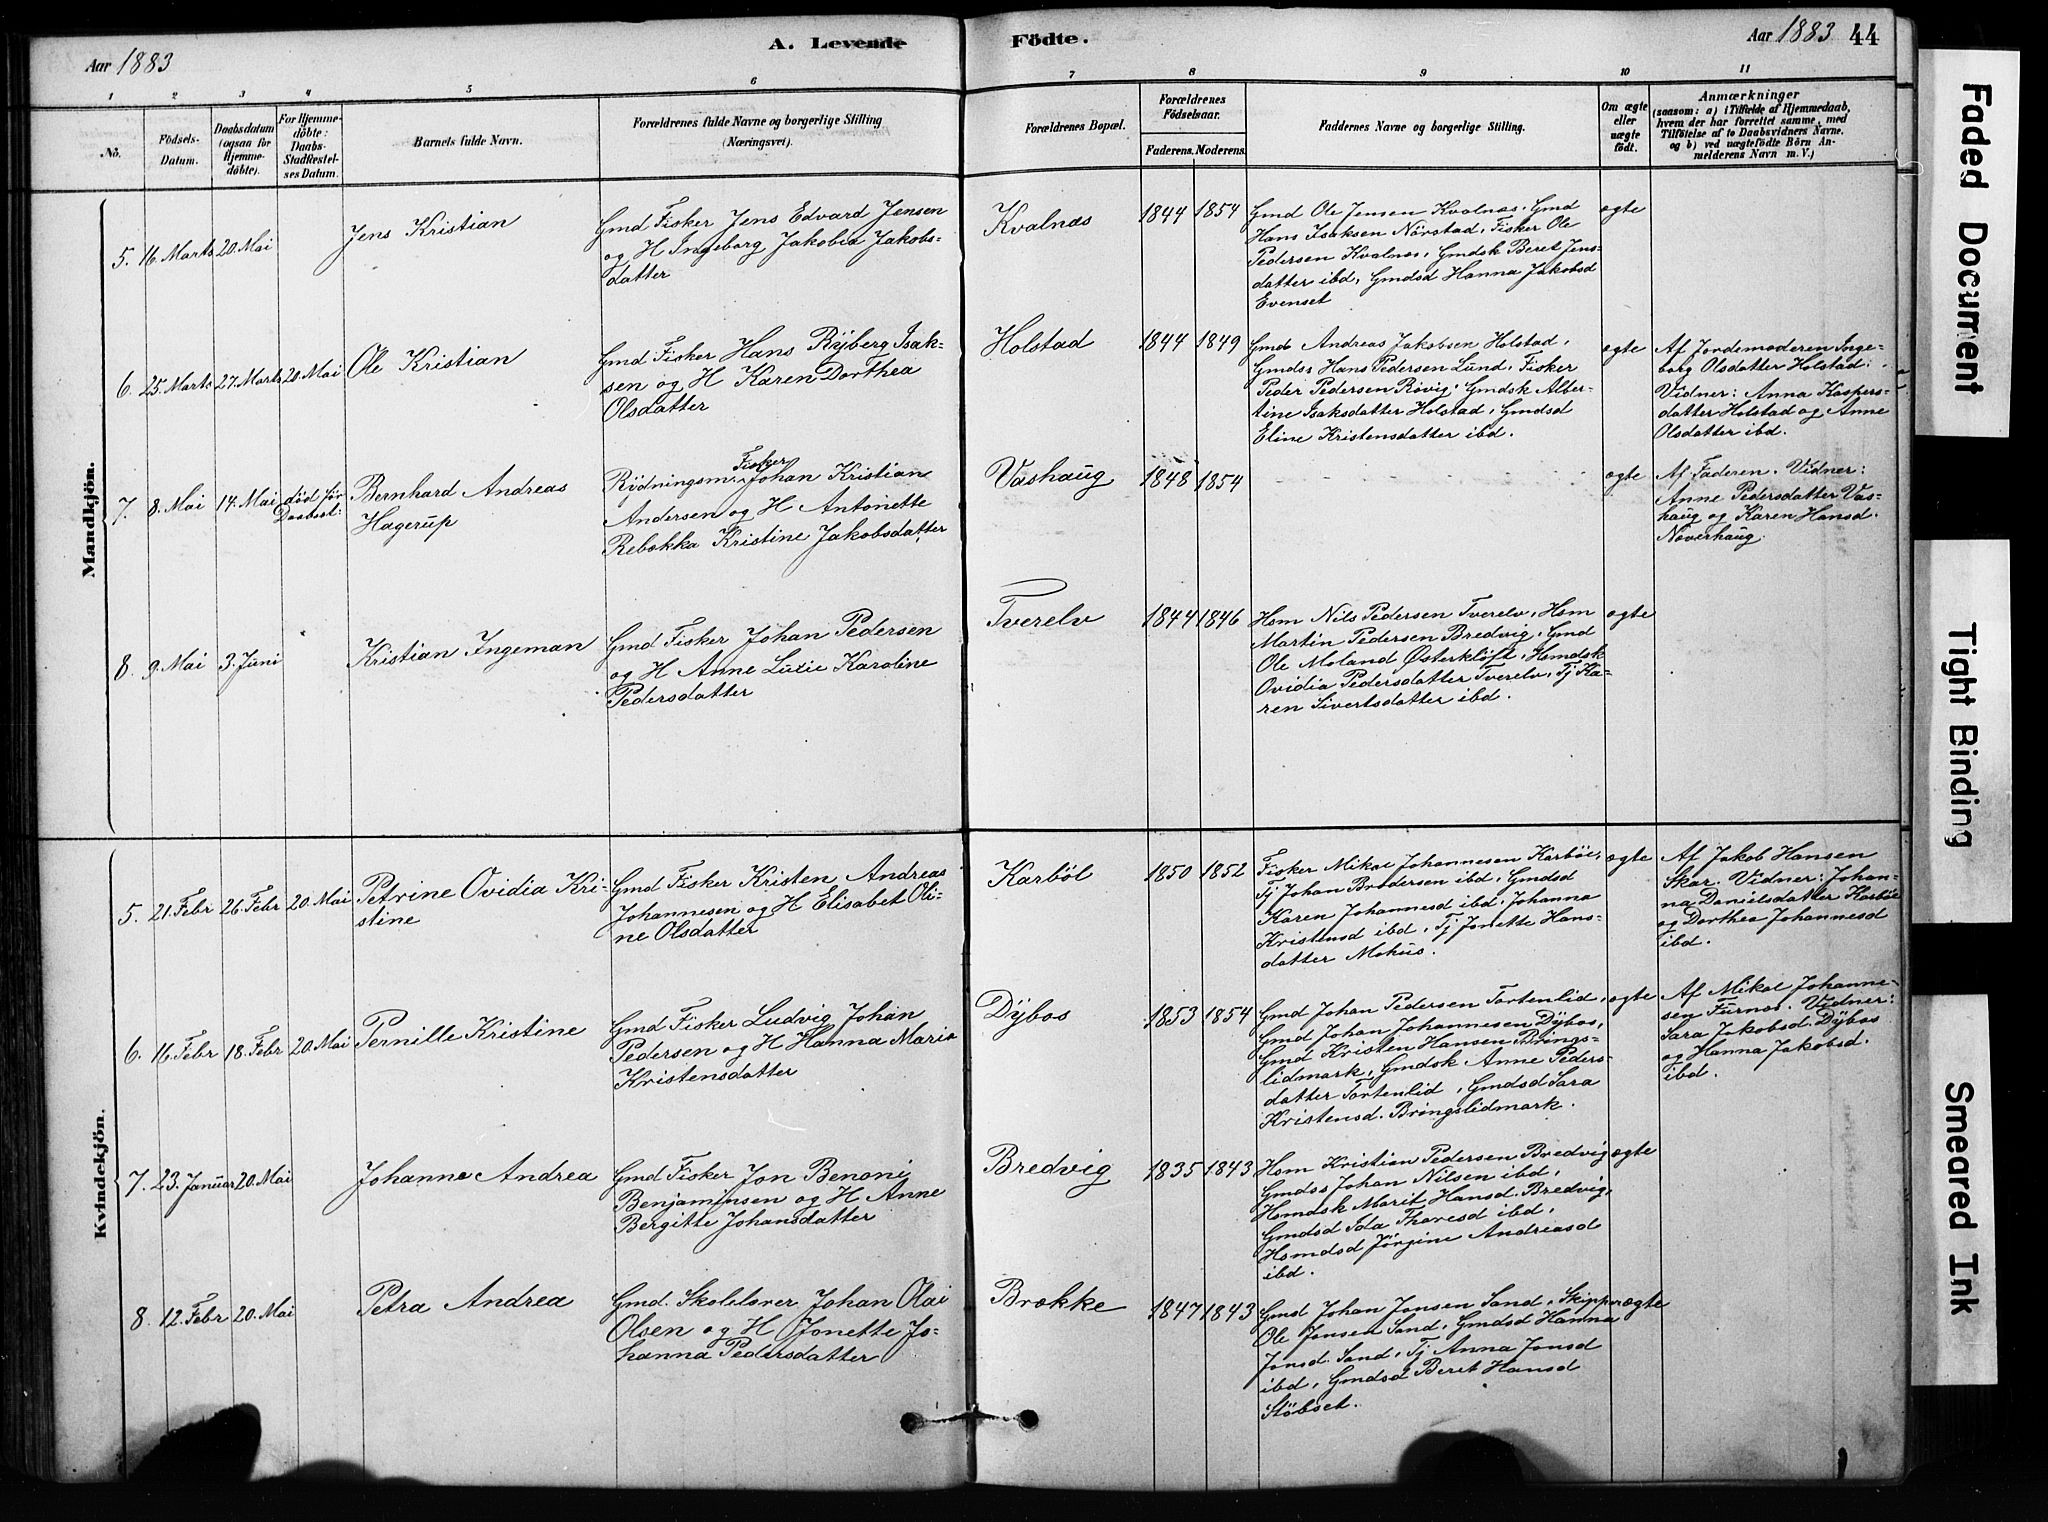 Aar 1883
A. Levende
Födte.
Aar 1883 44
1 2 3 4 5 6
7 8 9 10 11
No.
Födsels-
Datum.
Daabsdatum
(ogsaa for
Hjemme-
döbte).
For Hjemme-
döbte:
Daabs-
Stadfæstel-
ses Datum.
Barnets fulde Navn.
Forældrenes fulde Navne og borgerlige Stilling
(Næringsvei).
Forældrenes Bopæl.
Forældrenes
Födselsaar.
Faderens. Moderens.
Faddernes Navne og borgerlige Stilling.
Om ægte
eller
uægte
födt.
Anmærkninger
(saasom: a) i Tilfælde af Hjemmedaab,
hvem der har forrettet samme, med
Tilföielse af to Daabsvidners Navne,
og b) ved uægtefödte Börn An-
melderens Navn m. V.)
Mandkjön.
5. 16. Marts 20. Mai
Jens Kristian
Gmd Fisker Jens Edvard Jensen
og H Ingeborg Jakobia Jakobs-
datter
Kvalnæs
1844 1854
Gmd Ole Jensen Kvalnæs, Gmd
Hans Isaksen Nörstad, Fisker Ole
Pedersen Kvalnæs, Gmdsk Beret Jens-
datter ibd, Gmdsd Hanna Jakobsd
Evenset
ægte
6. 25. Marts 27. Marts 20. Mai
Ole Kristian
Gmd Fisker Hans Ryberg Isak-
sen og H Karen Dorthea
Olsdatter
Holstad
1844 1849
Gmd Andreas Jakobsen Holstad,
Gmdss Hans Pedersen Lund, Fisker
Peder Pedersen Rövig, Gmdsk Alber-
tine Isaksdatter Holstad, Gmdsd
Eline Kristensdatter ibd.
ægte
Af Jordemoderen Inge-
borg Olsdatter Holstad.
Vidner: Anna Kaspers-
datter Holstad og Anne
Olsdatter ibd.
7. 8. Mai 14. Mai död för
Daabsst.
Bernhard Andreas
Hagerup
Fisker
Rydningsm. Johan Kristian
Andersen og H Antonette
Rebekka Kristine Jakobsdatter
Vashaug
1848 1854
ægte
Af Faderen. Vidner:
Anne Pedersdatter Vas-
haug og Karen Hansd.
Noverhaug.
8. 9. Mai 3. Juni
Kristian Ingeman
Gmd Fisker Johan Pedersen
og H Anne Lucie Karoline
Pedersdatter
Tverelv
1844 1846
Hsm Nils Pedersen Tverelv, Hsm
Martin Pedersen Bredvig, Gmd
Ole Moland Österklöft, Hsmdsk
Ovidia Pedersdatter Tverelv, Tj Ka-
ren Sivertsdatter ibd.
ægte
Kvindekjön.
5. 21. Febr 26. Febr 20. Mai
Petrine Ovidia Kri-
stine
Gmd Fisker Kristen Andreas
Johannesen og H Elisabet Oli-
ne Olsdatter
Karböl
1850 1852
Fisker Mikal Johannesen Karböl,
Tj Johan Brodersen ibd, Gmdsd
Karen Johannesd ibd, Johanna
Kristensd ibd, Tj Jonette Hans-
datter Mohus.
ægte
Af Jakob Hansen
Skar. Vidner: Johan-
na Danielsdatter Karböl
og Dorthea Johannesd
ibd.
6. 16. Febr 18. Febr 20. Mai
Pernille Kristine
Gmd Fisker Ludvig Johan
Pedersen og H Hanna Maria
Kristensdatter
Dybos
1853 1854
Gmd Johan Pedersen Tortenlid,
Gmd Johan Johannesen Dybos,
Gmd Kristen Hansen Brings-
lidmark, Gmdsk Anne Peders-
datter Tortenlid, Gmdsd Sara
Kristensd. Bringslidmark.
ægte
Af Mikal Johanne-
sen Furnes. Vidner:
Sara Jakobsd. Dybos
og Hanna Jakobsd.
ibd.
7. 23. Januar 20. Mai
Johanne Andrea
Gmd Fisker Jon Benoni
Benjaminsen og H Anne
Bergitte Johansdatter
Bredvig
1835 1843
Hsm Kristian Pedersen Bredvig
Gmdss Johan Nilsen ibd,
Hsmdsk Marit Hansd. Bredvig,
Gmdsd Ida Thoresd ibd,
Hsmdsd Jörgine Andreasd
ibd.
ægte
8. 12. Febr 20. Mai
Petra Andrea
Gmd. Skolelærer Johan Olai
Olsen og H Jonette Jo-
hanna Pedersdatter
Brække
1847 1843
Gmd Johan Jonsen Sand, Skipper
Ole Jonsen Sand, Gmdsd Hanna
Jonsd. Sand, Tj Anna Jonsd
ibd, Gmdsd Beret Hansd
Stöbset.
ægte
Faded Document
Tight Binding
Smeared Ink